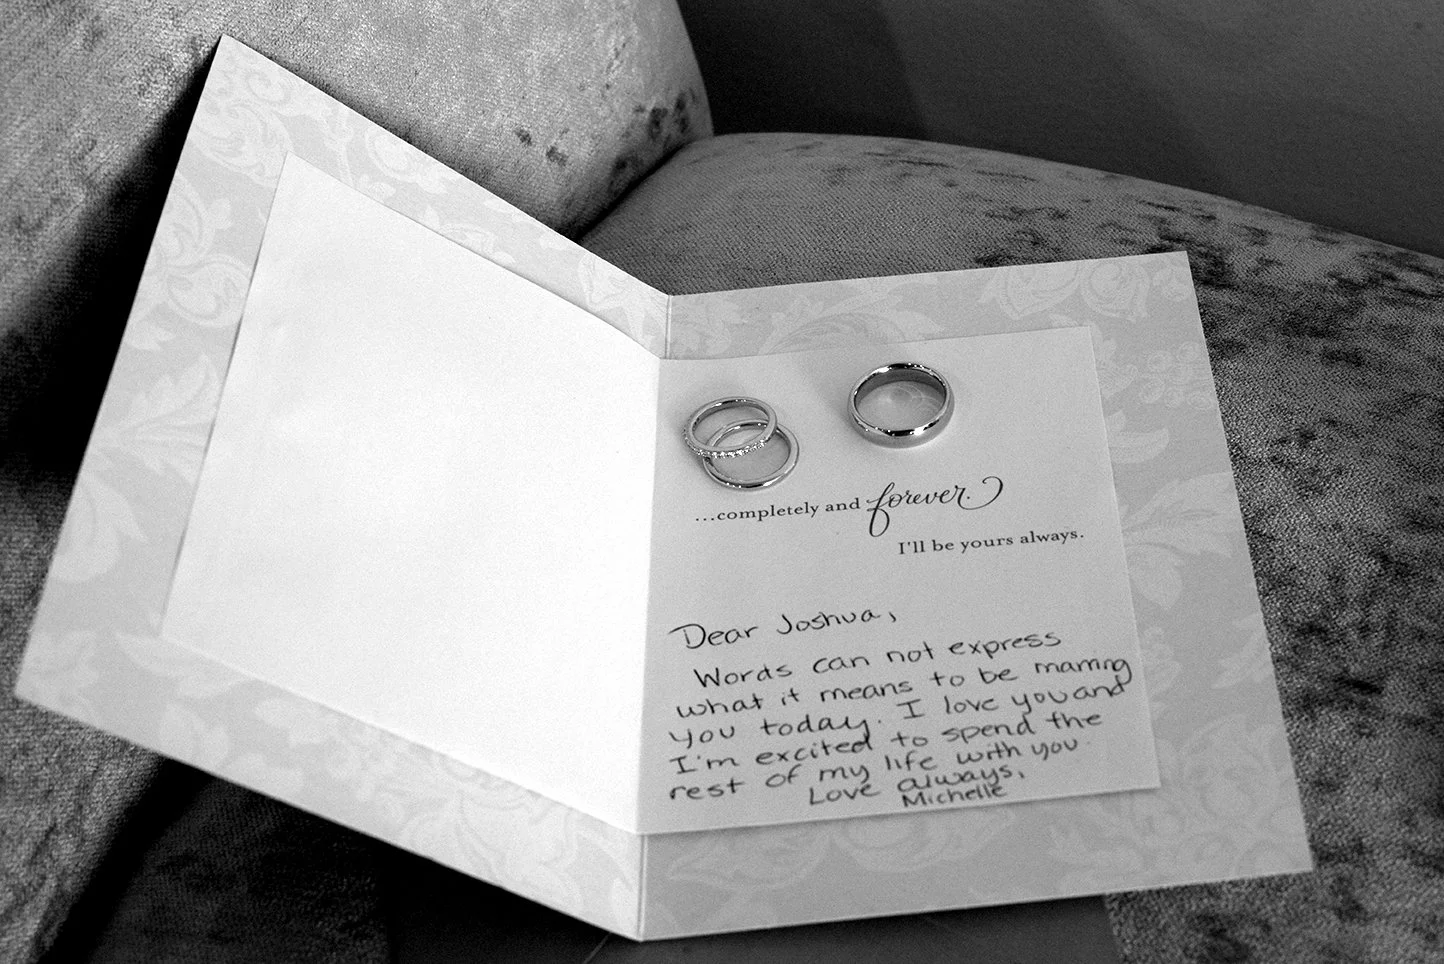 ...completely and forever.
I'll be yours always.
Dear Joshua,
Words can not express
what it means to be marring
you today. I love you and
I'm excited to spend the
rest of my life with you.
Love always,
Michelle